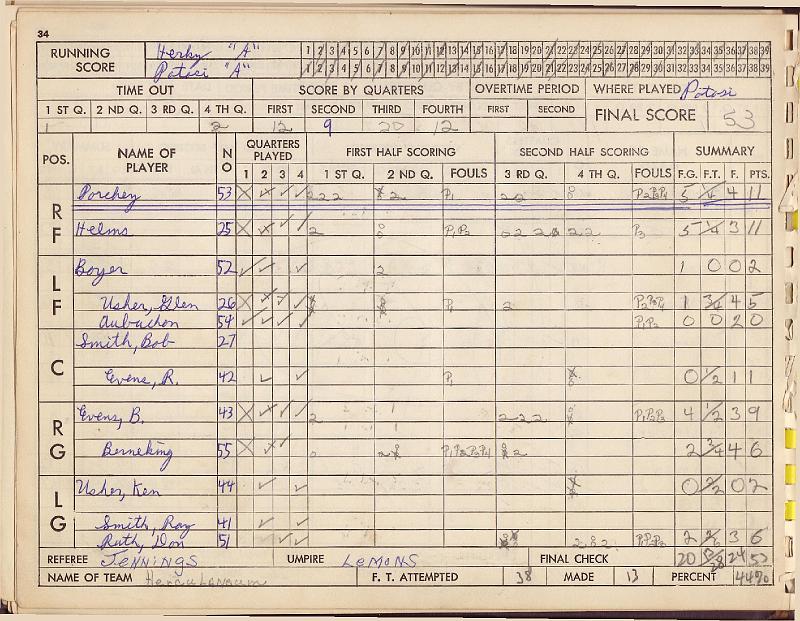 34
RUNNING SCORE Herky "A" 1 2 3 4 5 6 7 8 9 10 11 12 13 14 15 16 17 18 19 20 21 22 23 24 25 26 27 28 29 30 31 32 33 34 35 36 37 38 39
Potosi "A" 1 2 3 4 5 6 7 8 9 10 11 12 13 14 15 16 17 18 19 20 21 22 23 24 25 26 27 28 29 30 31 32 33 34 35 36 37 38 39
TIME OUT SCORE BY QUARTERS OVERTIME PERIOD WHERE PLAYED Potosi
1 ST Q. 2 ND Q. 3 RD Q. 4 TH Q. FIRST SECOND THIRD FOURTH FIRST SECOND FINAL SCORE 53
1 2 12 9 20 12
POS. NAME OF PLAYER NO QUARTERS PLAYED FIRST HALF SCORING SECOND HALF SCORING SUMMARY
1 2 3 4 1 ST Q. 2 ND Q. FOULS 3 RD Q. 4 TH Q. FOULS F.G. F.T. F. PTS.
RF Porchey 53 2 2 2 2 P1 P2P3P4 5 1/4 4 11
Helms 25 2 P1P2 P3 5 1/4 3 11
LF Boyer 52 2 1 0 0 2
Usher, Glen 26 P1 2 P2P3P4 1 3/4 4 5
Aubuchon 54 P1P2 0 0 2 0
C Smith, Bob 27
Evens, R. 42 P1 0 1/2 1 1
RG Evens, B. 43 2 2 2 2 P1P2P3 4 1/2 3 9
Berneking 55 P1P2P3P4 2 4 6
LG Usher, Ken 44 0 2/2 0 2
Smith, Ray 41
Ruth, Don 51 P1P2P3 2 2/6 3 6
REFEREE JENNINGS UMPIRE LEMONS FINAL CHECK 20 24 53
NAME OF TEAM Herculaneum F. T. ATTEMPTED 38 MADE 13 PERCENT 44%